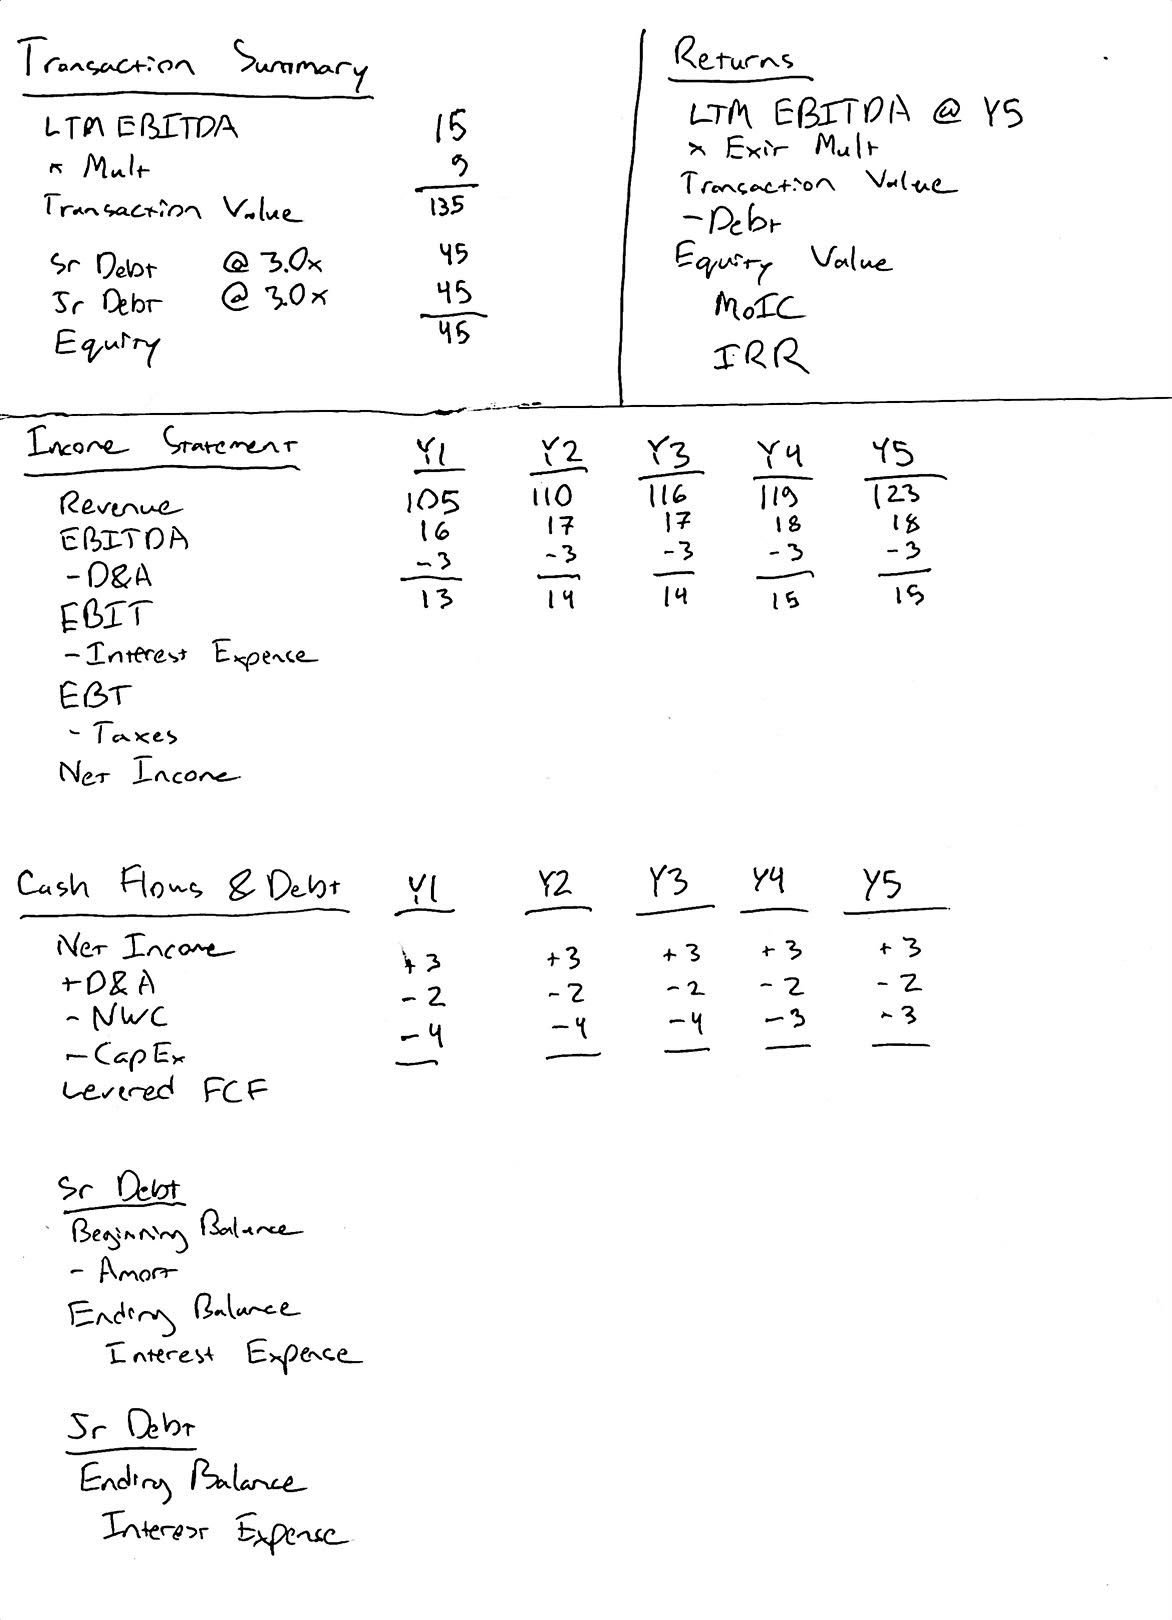 Transaction Summary
LTM EBITDA 15
x Mult 9
Transaction Value 135
Sr Debt @ 3.0x 45
Jr Debt @ 3.0x 45
Equity 45
Returns
LTM EBITDA @ Y5
x Exit Mult
Transaction Value
- Debt
Equity Value
MoIC
IRR
Income Statement Y1 Y2 Y3 Y4 Y5
Revenue 105 110 116 119 123
EBITDA 16 17 17 18 18
- D&A -3 -3 -3 -3 -3
EBIT 13 14 14 15 15
- Interest Expense
EBT
- Taxes
Net Income
Cash Flows & Debt Y1 Y2 Y3 Y4 Y5
Net Income
+ D&A +3 +3 +3 +3 +3
- NWC -2 -2 -2 -2 -2
- CapEx -4 -4 -4 -3 -3
Levered FCF
Sr Debt
Beginning Balance
- Amort
Ending Balance
Interest Expense
Jr Debt
Ending Balance
Interest Expense